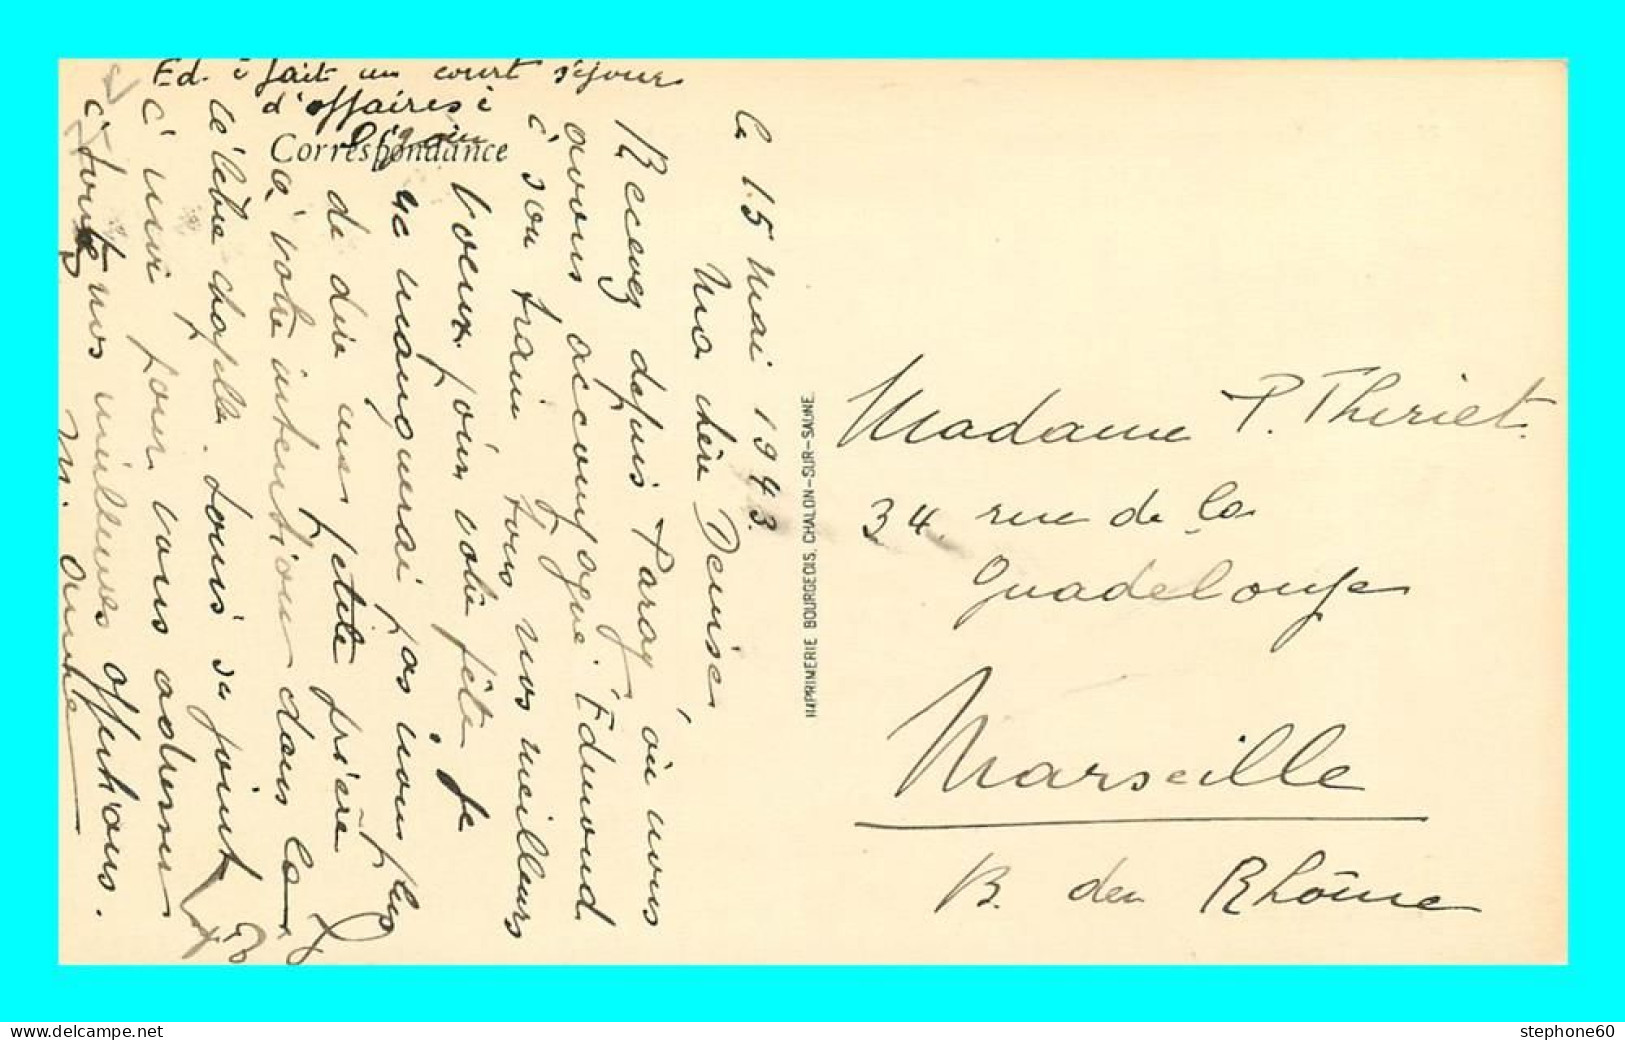 Ed. a fait un court séjour
d'affaires à
Correspondance
le 15 Mai 1943.
Ma chère Denise,
Recevez depuis Paray, où nous
avons accompagné Edmond
à son train tous nos meilleurs
voeux pour votre fête. Je
ne manquerai pas non plus
de dire une petite prière
à votre intention dans la
célèbre chapelle. Louis se joint
à moi pour vous adresser
à toutes nos meilleures affections.
IMPRIMERIE BOURGEOIS, CHALON-SUR-SAONE
Madame P. Theriet
34 rue de la
Guadeloupe
Marseille
B. du Rhône
stephone60